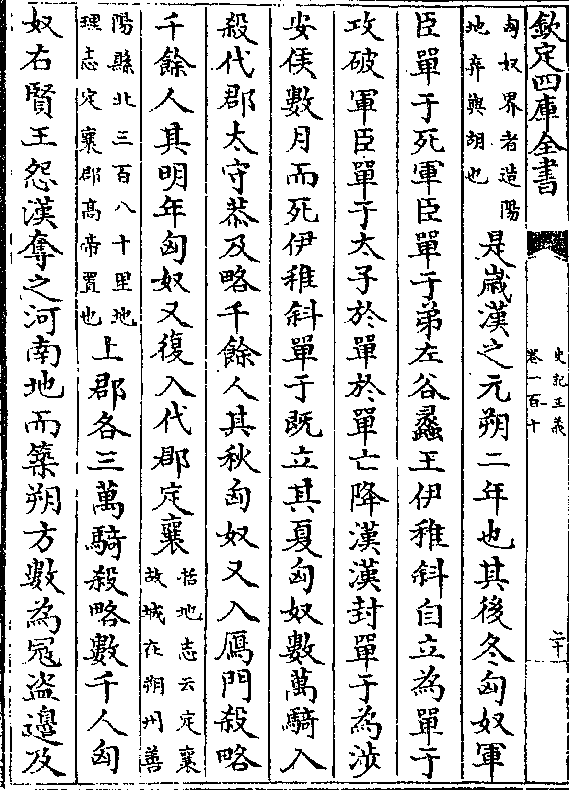 欽定四庫全書
史記正義
卷一百十
二十
匈奴界者造陽
地弃與胡也
是歲漢之元朔二年也其後冬匈奴軍
臣單于死軍臣單于弟左谷蠡王伊稚斜自立為單于
攻破軍臣單于太子於單於單亡降漢漢封單于為涉
安侯數月而死伊稚斜單于既立其夏匈奴數萬騎入
殺代郡太守恭及略千餘人其秋匈奴又入鴈門殺略
千餘人其明年匈奴又復入代郡定襄
括地志云定襄
故城在朔州善
陽縣北三百八十里地
理志定襄郡高帝置也
上郡各三萬騎殺略數千人匈
奴右賢王怨漢奪之河南地而築朔方數為冦盜邊及